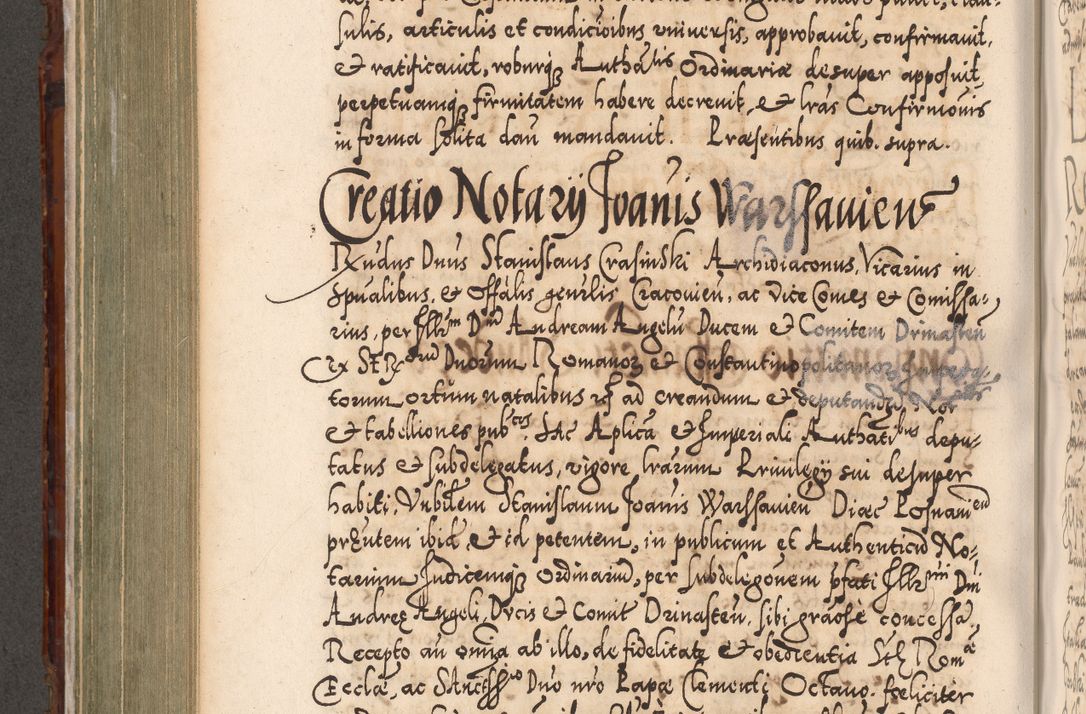 sulis, articulis et condicioibus universis, approbavit, confirmavit,
et ratificavit, roburq3 Autha^lis Ordinariæ desuper apposuit,
perpetuamq3 firmitatem habere decrevit, et lrãs Confirmõnis
in forma solita dari mandavit. Præsentibus quib. supra.
Creatio Notarij Joanis Warssavien
Rndus Dnus Stanislaus Crasinski Archidiaconus, Vicarius in
spualibus, et Offãlis gen̄rlis Cracovien̄, ac Vice Comes et Comissa-
rius, per Illr^m D^n Andream Angelũ Ducem et Comitem Drinasten̄
ex St Duorum Romanor et Constantinopolitanor
torum ortum natalibus ad creandum et deputandũ Not
et tabelliones pub^cos, Sac Aplica et Imperiali Authati^bus depu-
tatus et subdelegatus, vigore lrãrum Privilegij sui desuper
habiti, Nobilem Stanislaum Joanis Warssavien̄ Diæc Posnanien̄
prñtem ibid, et id petentem, in publicum et Authenticũ No-
tarium Iudicemq3 Ordinariũ, per subdelegõnem pfati Illr^mi Dni
Andreę Angeli, Ducis et Comit Drinasten̄, sibi graõse concessã,
Recepto aũ om̃ia ab illo, de fidelitate et obedientia Stæ Rom^æ
Ecclæ, ac SAnctiss^o Dno nro Papæ Clementi Octavo. fæliciter